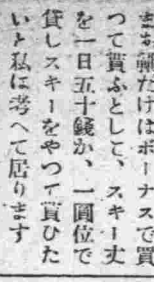 靴だけはボーナスで買
つて貰ふとして、スキー丈
を一日五十錢か、一圓位で
貸しスキーをやつて貰ひた
いと私は考へて居ります